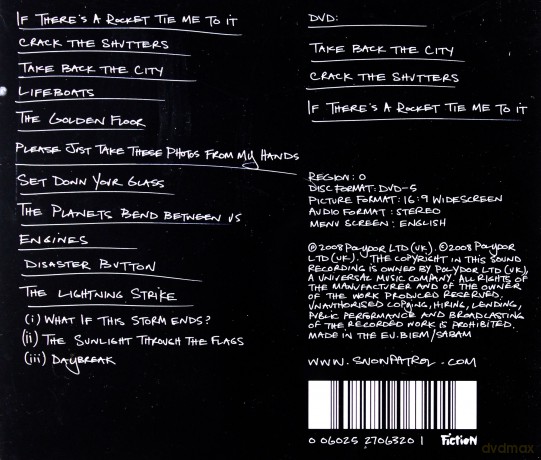 IF THERE'S A ROCKET TIE ME TO IT
CRACK THE SHUTTERS
TAKE BACK THE CITY
LIFEBOATS
THE GOLDEN FLOOR
PLEASE JUST TAKE THESE PHOTOS FROM MY HANDS
SET DOWN YOUR GLASS
THE PLANETS BEND BETWEEN US
ENGINES
DISASTER BUTTON
THE LIGHTNING STRIKE
(i) WHAT IF THIS STORM ENDS?
(ii) THE SUNLIGHT THROUGH THE FLAGS
(iii) DAYBREAK
DVD:
TAKE BACK THE CITY
CRACK THE SHUTTERS
IF THERE'S A ROCKET TIE ME TO IT
REGION: 0
DISC FORMAT: DVD-5
PICTURE FORMAT: 16:9 WIDESCREEN
AUDIO FORMAT: STEREO
MENU SCREEN: ENGLISH
℗2008 Polydor LTD (UK). ©2008 Polydor
LTD (UK). THE COPYRIGHT IN THIS SOUND
RECORDING IS OWNED BY POLYDOR LTD (UK),
A UNIVERSAL MUSIC COMPANY. ALL RIGHTS OF
THE MANUFACTURER AND OF THE OWNER
OF THE WORK PRODUCED RESERVED.
UNAUTHORISED COPYING, HIRING, LENDING,
PUBLIC PERFORMANCE AND BROADCASTING
OF THE RECORDED WORK IS PROHIBITED.
MADE IN THE EU. BIEM/SABAM
WWW.SNOWPATROL.COM
0 06025 2706320 1
FICTION
dvdmax